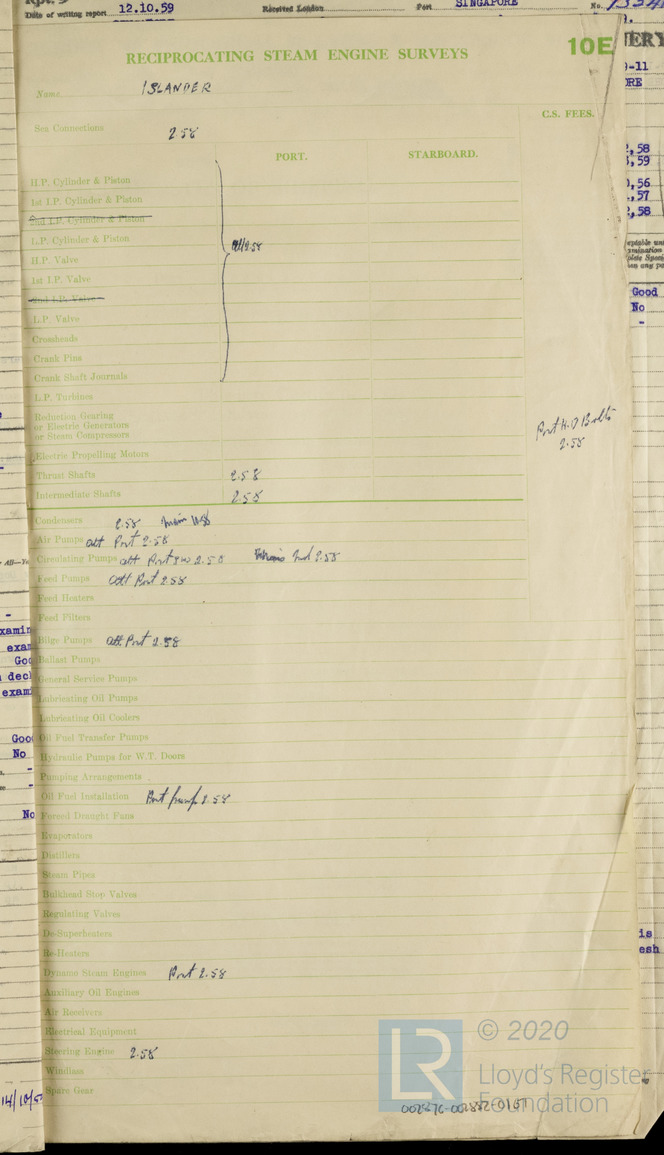 Date of writing report 12.10.59 Received London Port SINGAPORE No.
RECIPROCATING STEAM ENGINE SURVEYS 10E
Name ISLANDER
C.S. FEES.
Sea Connections 2.58
PORT. STARBOARD.
H.P. Cylinder & Piston
1st I.P. Cylinder & Piston
2nd I.P. Cylinder & Piston
L.P. Cylinder & Piston
All 2.58
H.P. Valve
1st I.P. Valve
2nd I.P. Valve
L.P. Valve
Crossheads
Crank Pins
Crank Shaft Journals
L.P. Turbines
Reduction Gearing
or Electric Generators
or Steam Compressors
Port H.D Bolts
2.58
Electric Propelling Motors
Thrust Shafts 2.58
Intermediate Shafts 2.58
Condensers 2.58 main
Air Pumps att Port 2.58
Circulating Pumps att Port 2.58 2nd 2.58
Feed Pumps att Port 2.58
Feed Heaters
Feed Filters
Bilge Pumps att Port 2.58
Ballast Pumps
General Service Pumps
Lubricating Oil Pumps
Lubricating Oil Coolers
Oil Fuel Transfer Pumps
Hydraulic Pumps for W.T. Doors
Pumping Arrangements
Oil Fuel Installation Port pump 2.58
Forced Draught Fans
Evaporators
Distillers
Steam Pipes
Bulkhead Stop Valves
Regulating Valves
De-Superheaters
Re-Heaters
Dynamo Steam Engines Port 2.58
Auxiliary Oil Engines
Air Receivers
Electrical Equipment
Steering Engine 2.58
Windlass
Spare Gear
LR © 2020
Lloyd's Register
Foundation
002876-002882-0167
Good
No